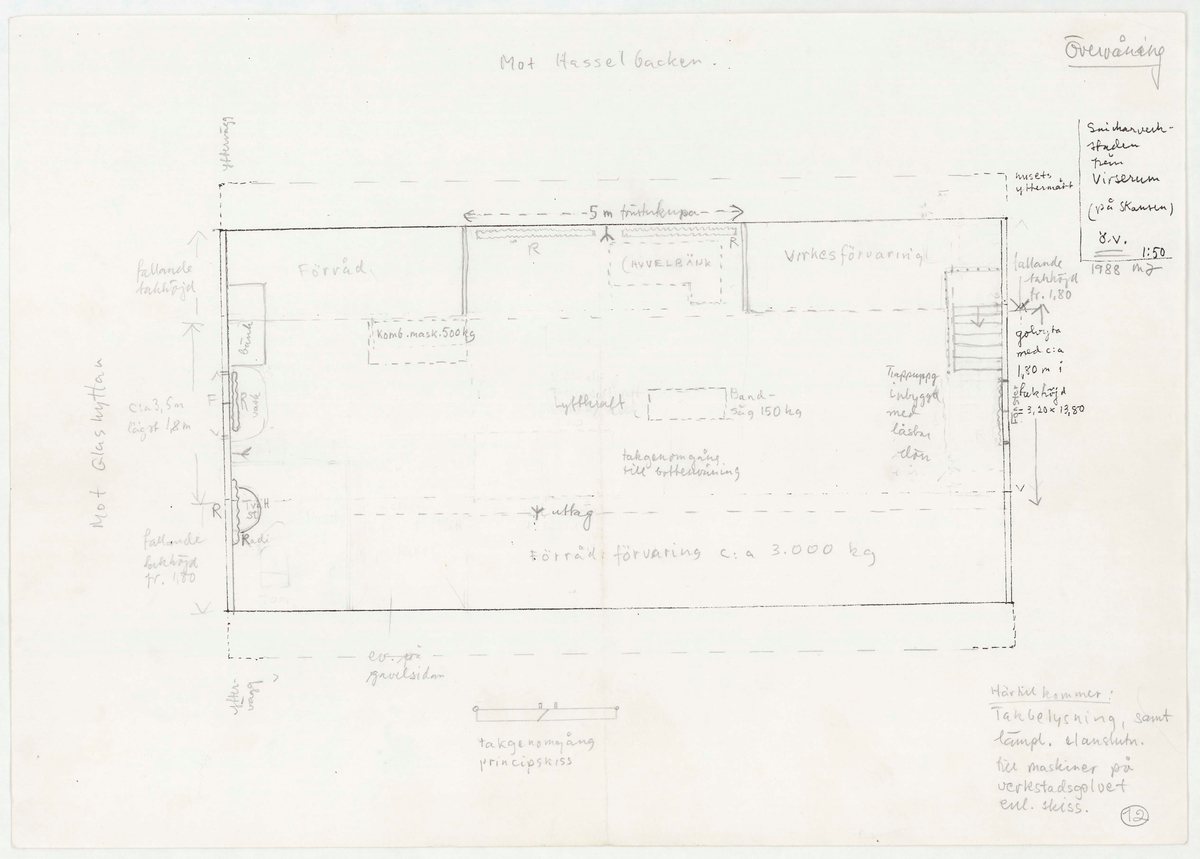 Mot Hasselbacken.
Övervåning
Snickarverk-
staden
från
Virserum
(på Skansen)
Ö.V.
1:50
1988
yttervägg
husets
yttermått
5 m frustukupa
R
R
Förråd
(HYVELBÄNK
Virkesförvaring
fallande
takhöjd
fallande
takhöjd
fr. 1,80
bänk
Komb.mask.500kg
golvyta
med c:a
1,80 m i
takhöjd
= 3,20 x 13,80
Mot Glashyttan
c:a 3,5 m
lägst 1,8 m
vask
Lyftkraft
Band-
såg 150 kg
Trappuppg
inbyggd
med
låsbar
dörr
takgenomgång
till bottenvåning
R
uttag
Radi
Förråd: förvaring c:a 3.000 kg
fallande
takhöjd
fr. 1,80
ev. på
gavelsidan
ytter-
vägg
takgenomgång
principskiss
Härtill kommer:
Takbelysning, samt
lämpl. elanslutn.
till maskiner på
verkstadsgolvet
enl. skiss.
12